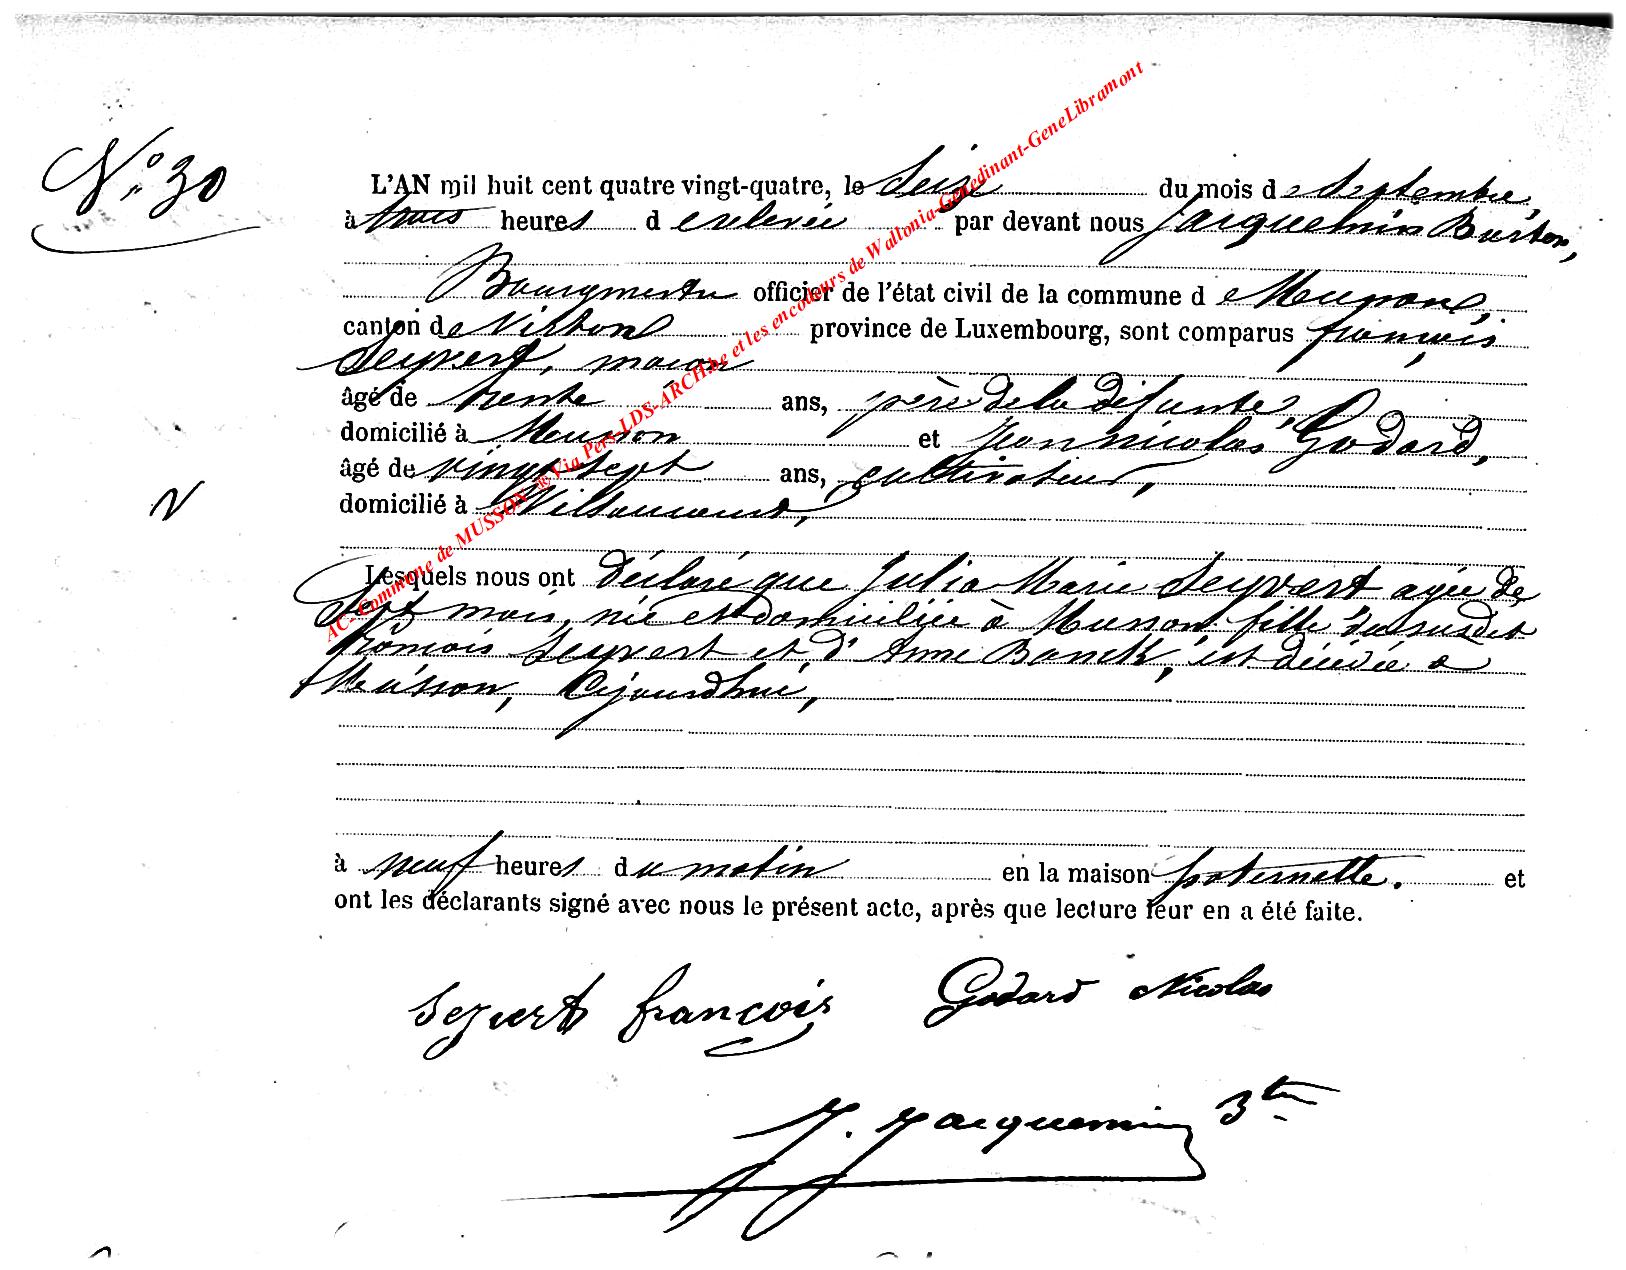 N° 30
L'AN mil huit cent quatre vingt-quatre, le Seize du mois de Septembre,
à trois heures de relevée par devant nous Jacquemin Burton,
Bourgmestre officier de l'état civil de la commune de Musson,
canton de Virton province de Luxembourg, sont comparus françois
Seyvert, maçon
âgé de trente ans, père de la défunte,
domicilié à Musson et Jean nicolas Godard,
âgé de vingt sept ans, cultivateur,
domicilié à Willancourt,
Lesquels nous ont déclaré que Julia Marie Seyvert agée de
Sept mois, née et domiciliée à Musson fille du susdit
françois Seyvert et d'Anne Banck, est décédée a
Musson, Cejourdhui,
à neuf heures du matin en la maison paternelle. et
ont les déclarants signé avec nous le présent acte, après que lecture leur en a été faite.
Seyvert françois Godard Nicolas
J. Jacquemin
AC-Commune de MUSSON ® Via Pers-LDS-ARCH.be et les encodeurs de Wallonia-Genedinant-GeneLibramont